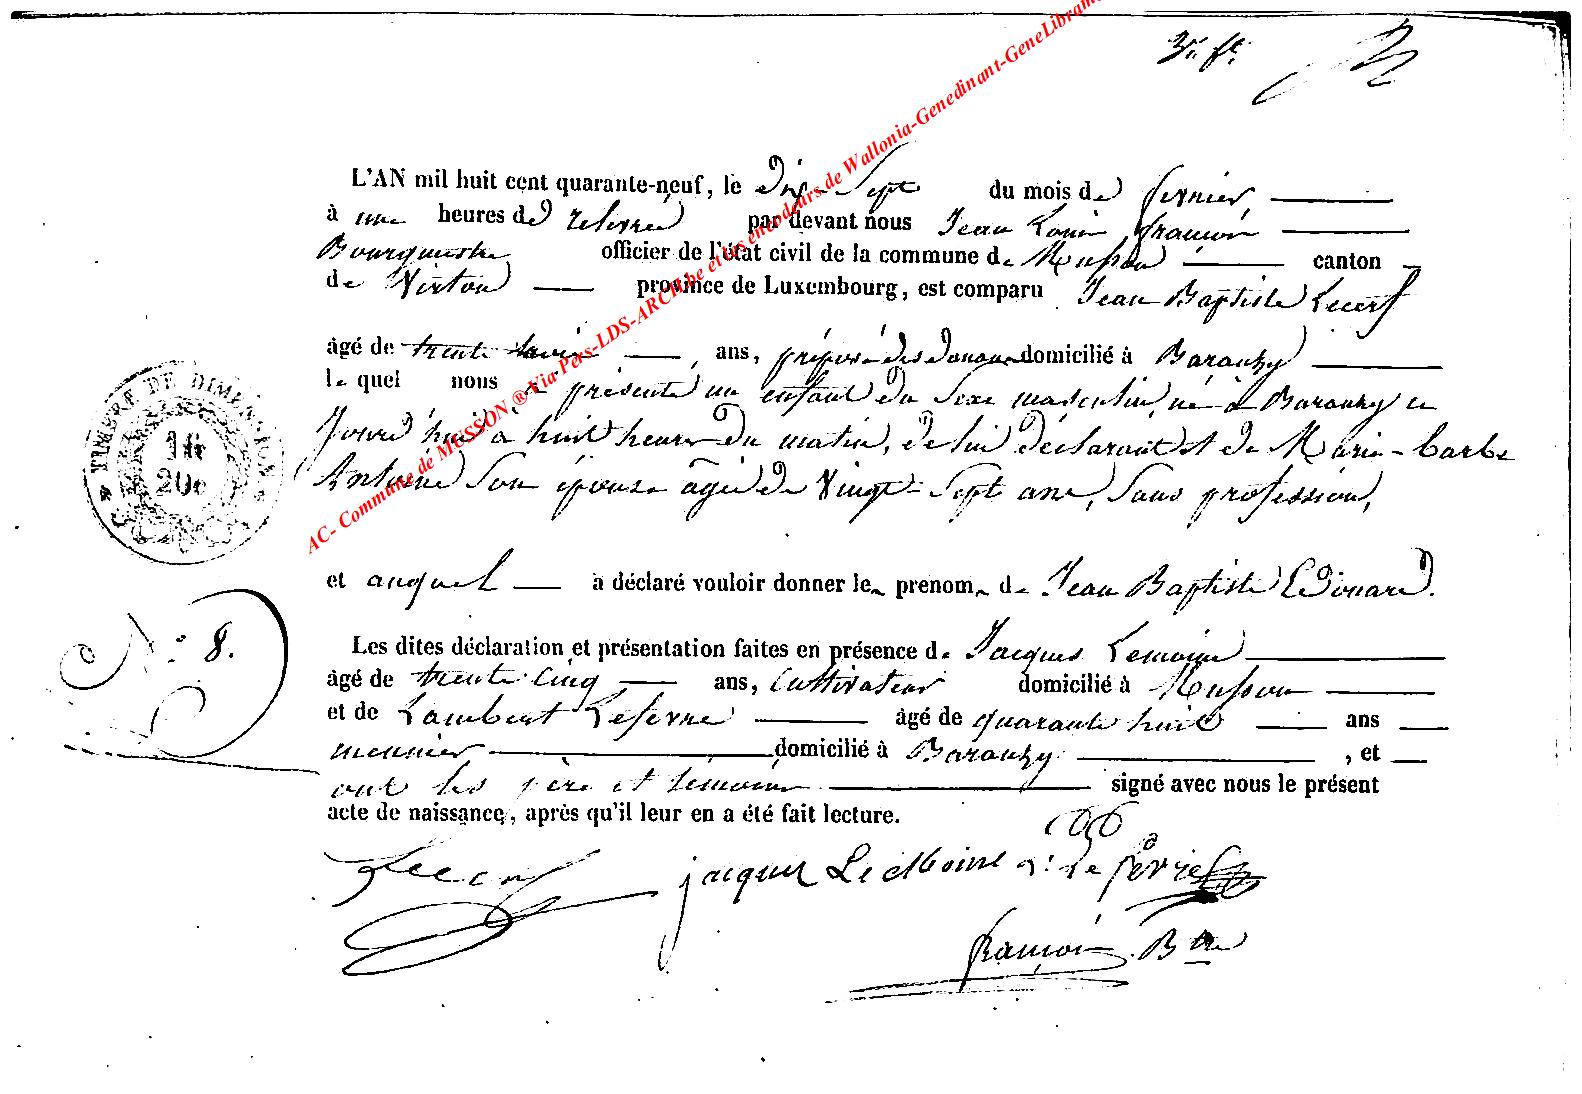 3e ft.
L'AN mil huit cent quarante-neuf, le dix-Sept du mois de fevrier,
à une heures de relevée par devant nous Jean Louis françois
Bourgmestre officier de l'état civil de la commune de Musson canton
de Virton province de Luxembourg, est comparu Jean Baptiste Lecerf
âgé de trente ans, préposé des douanes domicilié à Baranzy
le quel nous a présenté un enfant du Sexe masculin, né à Baranzy ce
Jourd'hui à huit heures du matin, de lui déclarant et de Marie-barbe
Antoine Son épouse âgée de Vingt-Sept ans, Sans profession,
et auquel a déclaré vouloir donner les prenoms de Jean Baptiste Edouard.
Les dites déclaration et présentation faites en présence de Jacques Lemoine
âgé de trente Cinq ans, Cultivateur domicilié à Musson
et de Lambert Lefevre âgé de quarante huit ans
meunier domicilié à Baranzy, et
ont les père et témoins signé avec nous le présent
acte de naissance, après qu'il leur en a été fait lecture.
TIMBRE DE DIMENSION
N°: 8.
Lecerf jacques Le Moine L: Le fevre
françois Btre
AC- Commune de MUSSON ® Via Pers-LDS-ARCH.be et les encodeurs de Wallonia-Genedinant-GeneLibram